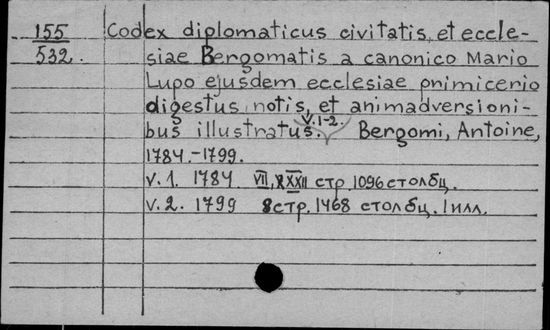 155
532
Codex diplomaticus civitatis, et eccle-
siae Bergomatis a canonico Mario
Lupo ejusdem ecclesiae primicerio
digestus notis, et animadversioni-
bus illustratus. V.1-2. Bergomi, Antoine,
1784.-1799.
V.1. 1784 VII, XXII стр. 1096 столбц.
V.2. 1799 8 стр. 1468 столбц. 1 илл.